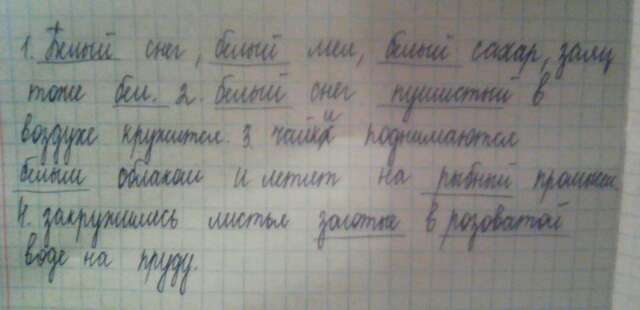 1. Белый снег, белый мел, белый сахар, заяц
тоже бел. 2. Белый снег пушистый в
воздухе кружится. 3. чайки поднимаются
белым облаком и летят на рыбный промысел.
4. закружились листья золотые в розоватой
воде на пруду.